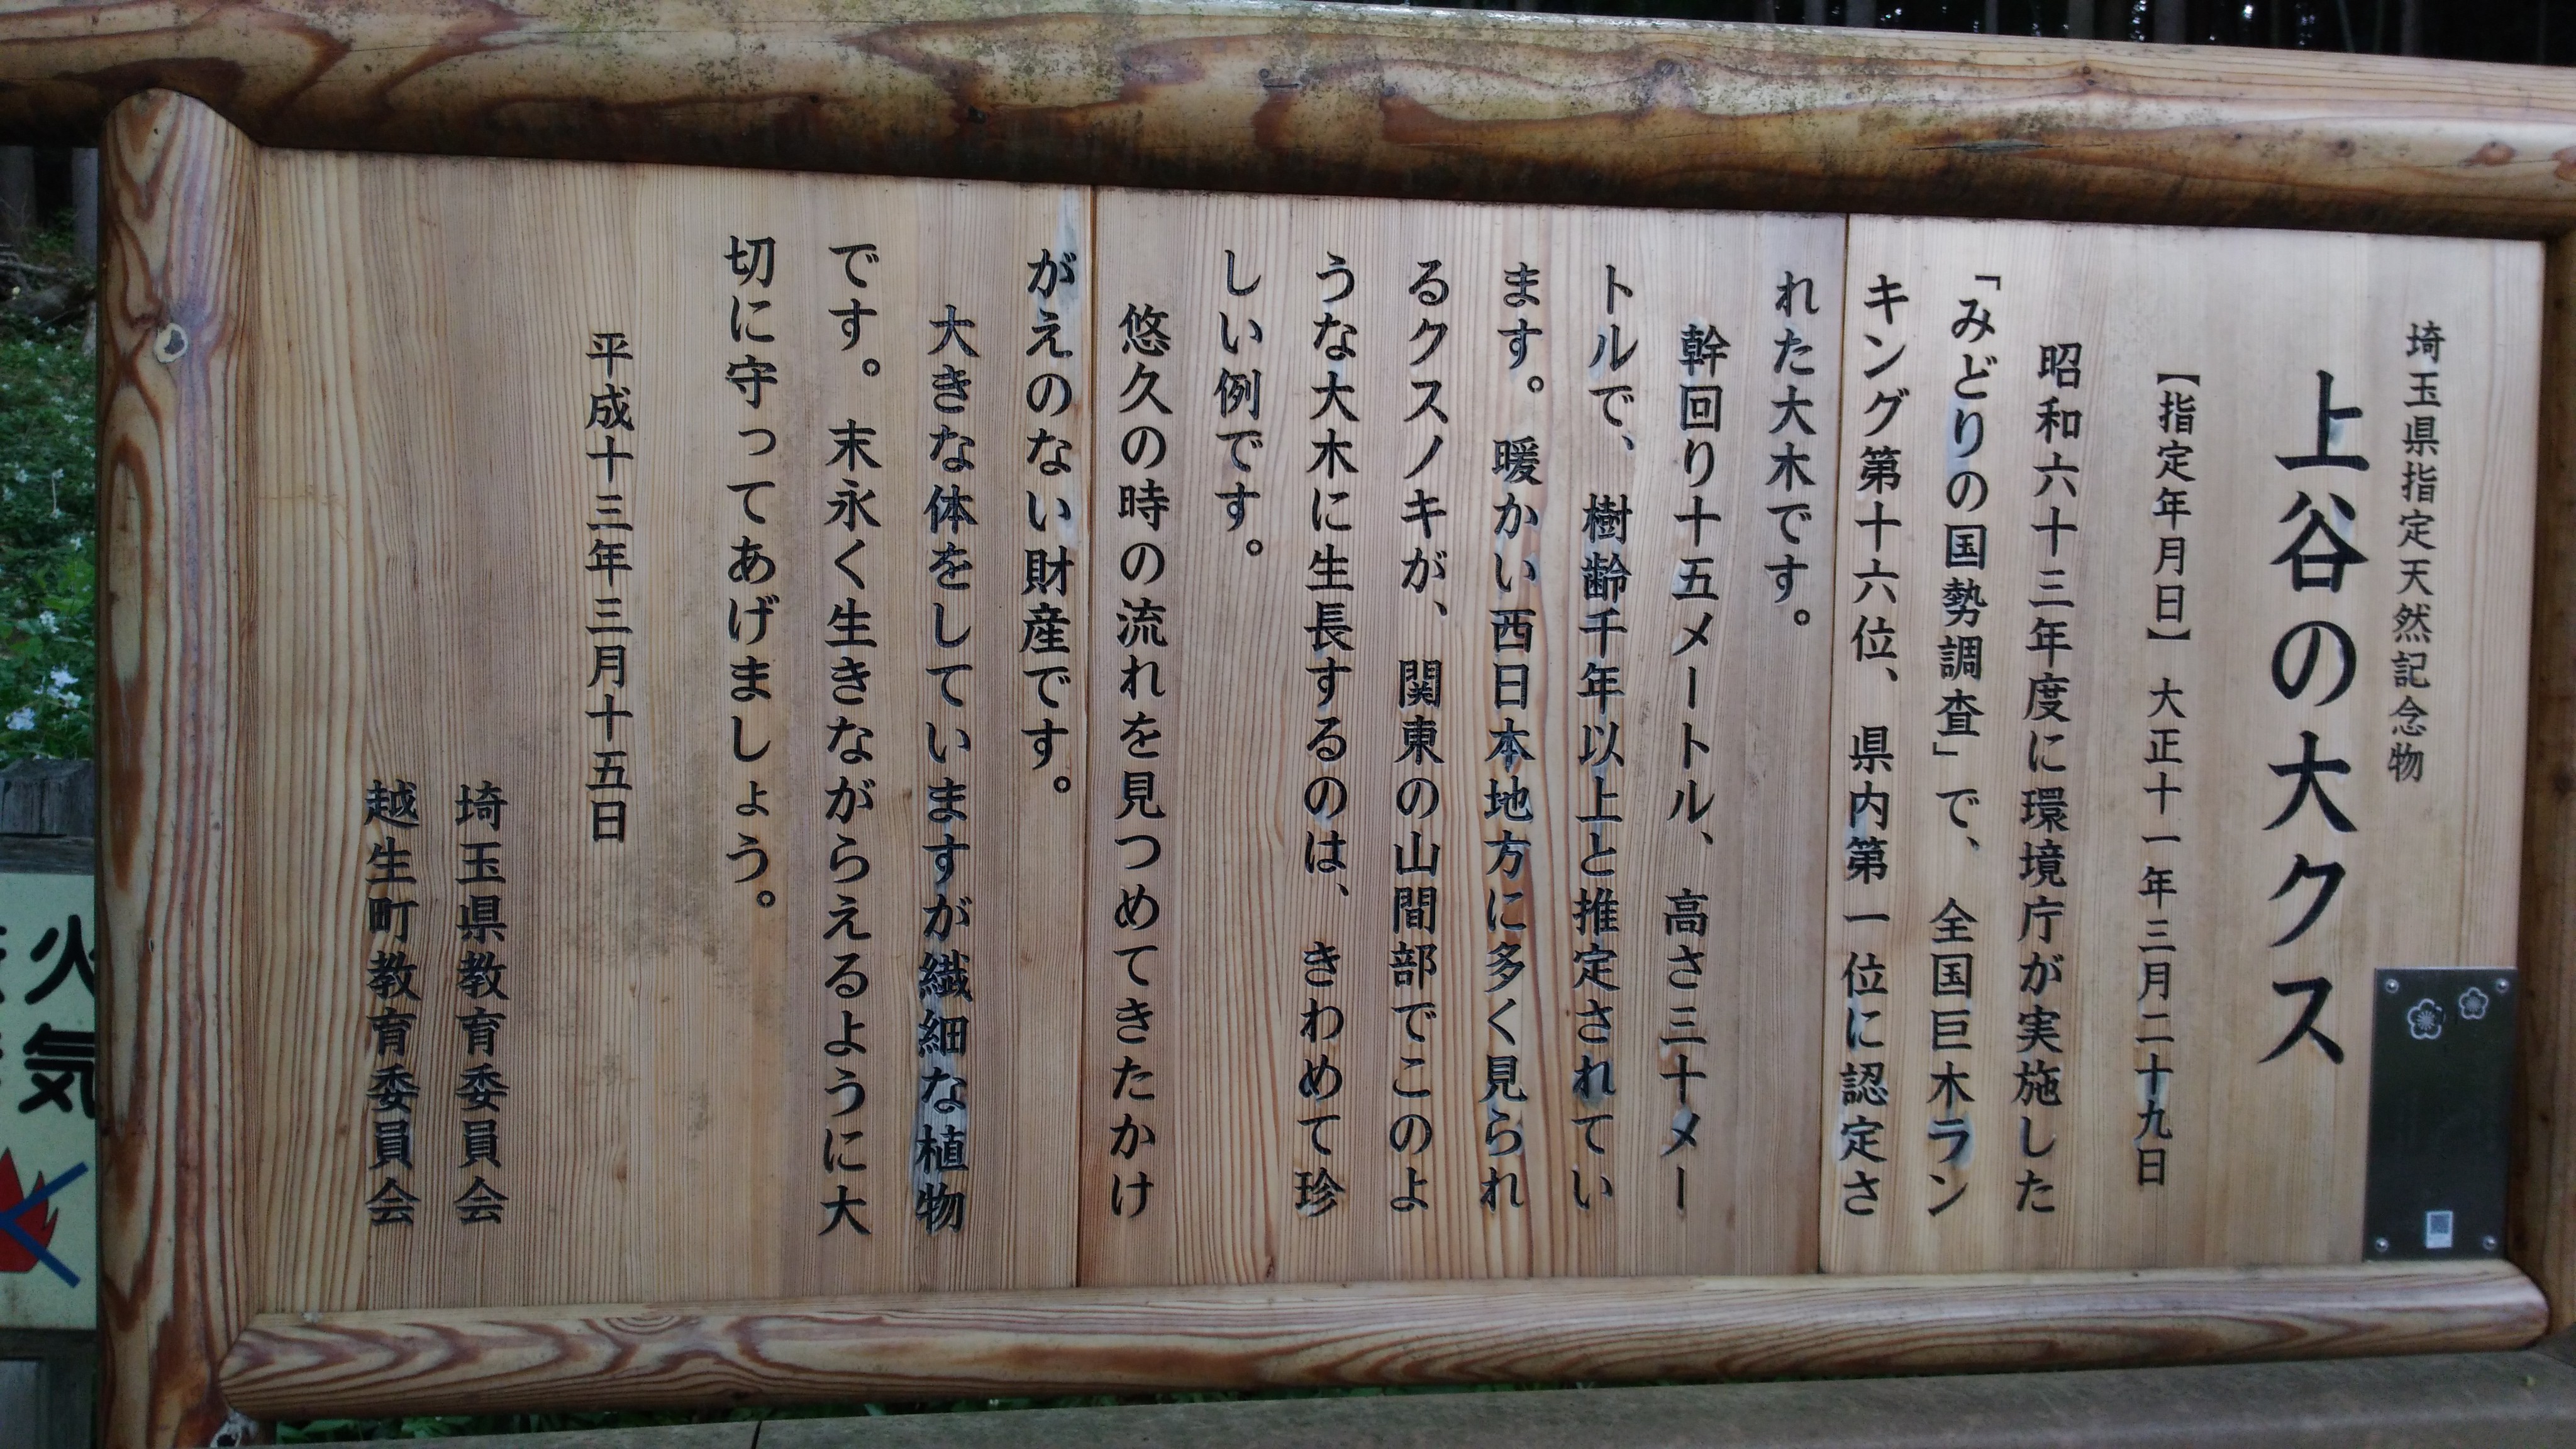 埼玉県指定天然記念物
上谷の大クス
【指定年月日】 大正十一年三月二十九日
昭和六十三年度に環境庁が実施した
「みどりの国勢調査」で、全国巨木ラン
キング第十六位、県内第一位に認定さ
れた大木です。
幹回り十五メートル、高さ三十メー
トルで、樹齢千年以上と推定されてい
ます。暖かい西日本地方に多く見られ
るクスノキが、関東の山間部でこのよ
うな大木に生長するのは、きわめて珍
しい例です。
悠久の時の流れを見つめてきたかけ
がえのない財産です。
大きな体をしていますが繊細な植物
です。末永く生きながらえるように大
切に守ってあげましょう。
平成十三年三月十五日
埼玉県教育委員会
越生町教育委員会
火気